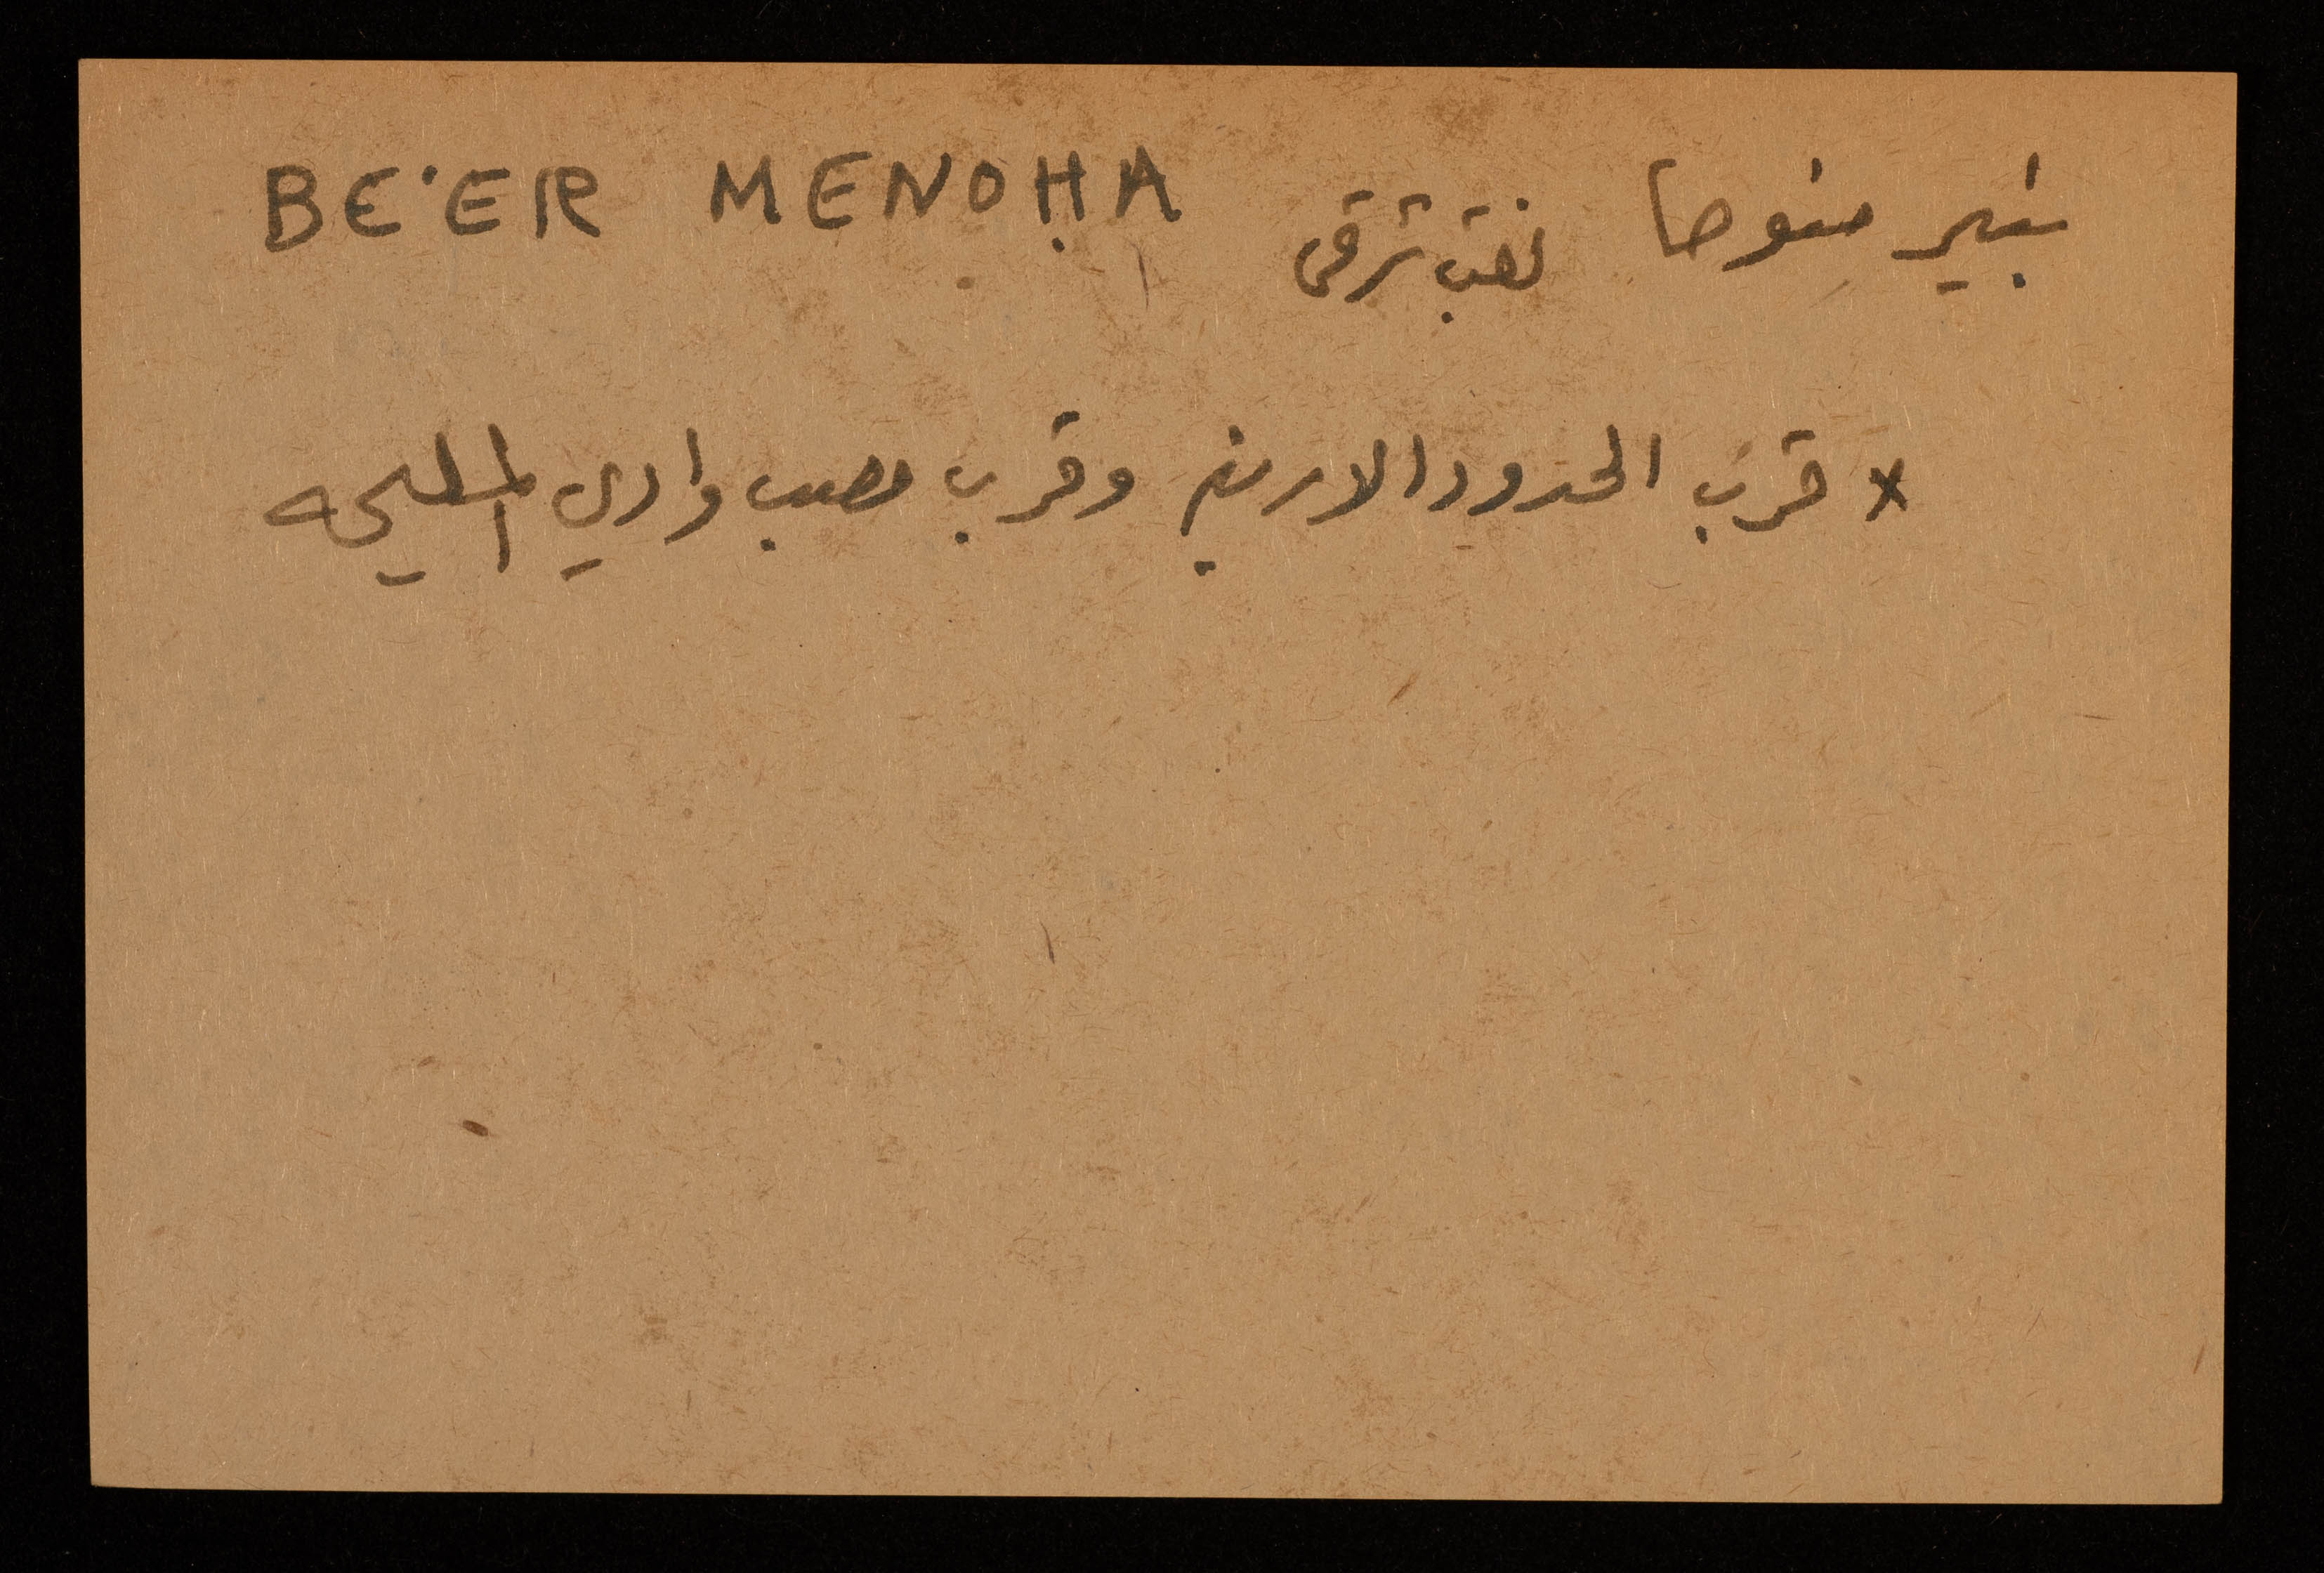 بئير منوحا نقب شرقي BE'ER MENOḤA
x قرب الحدود الاردنية وقرب مصب وادي المليحه